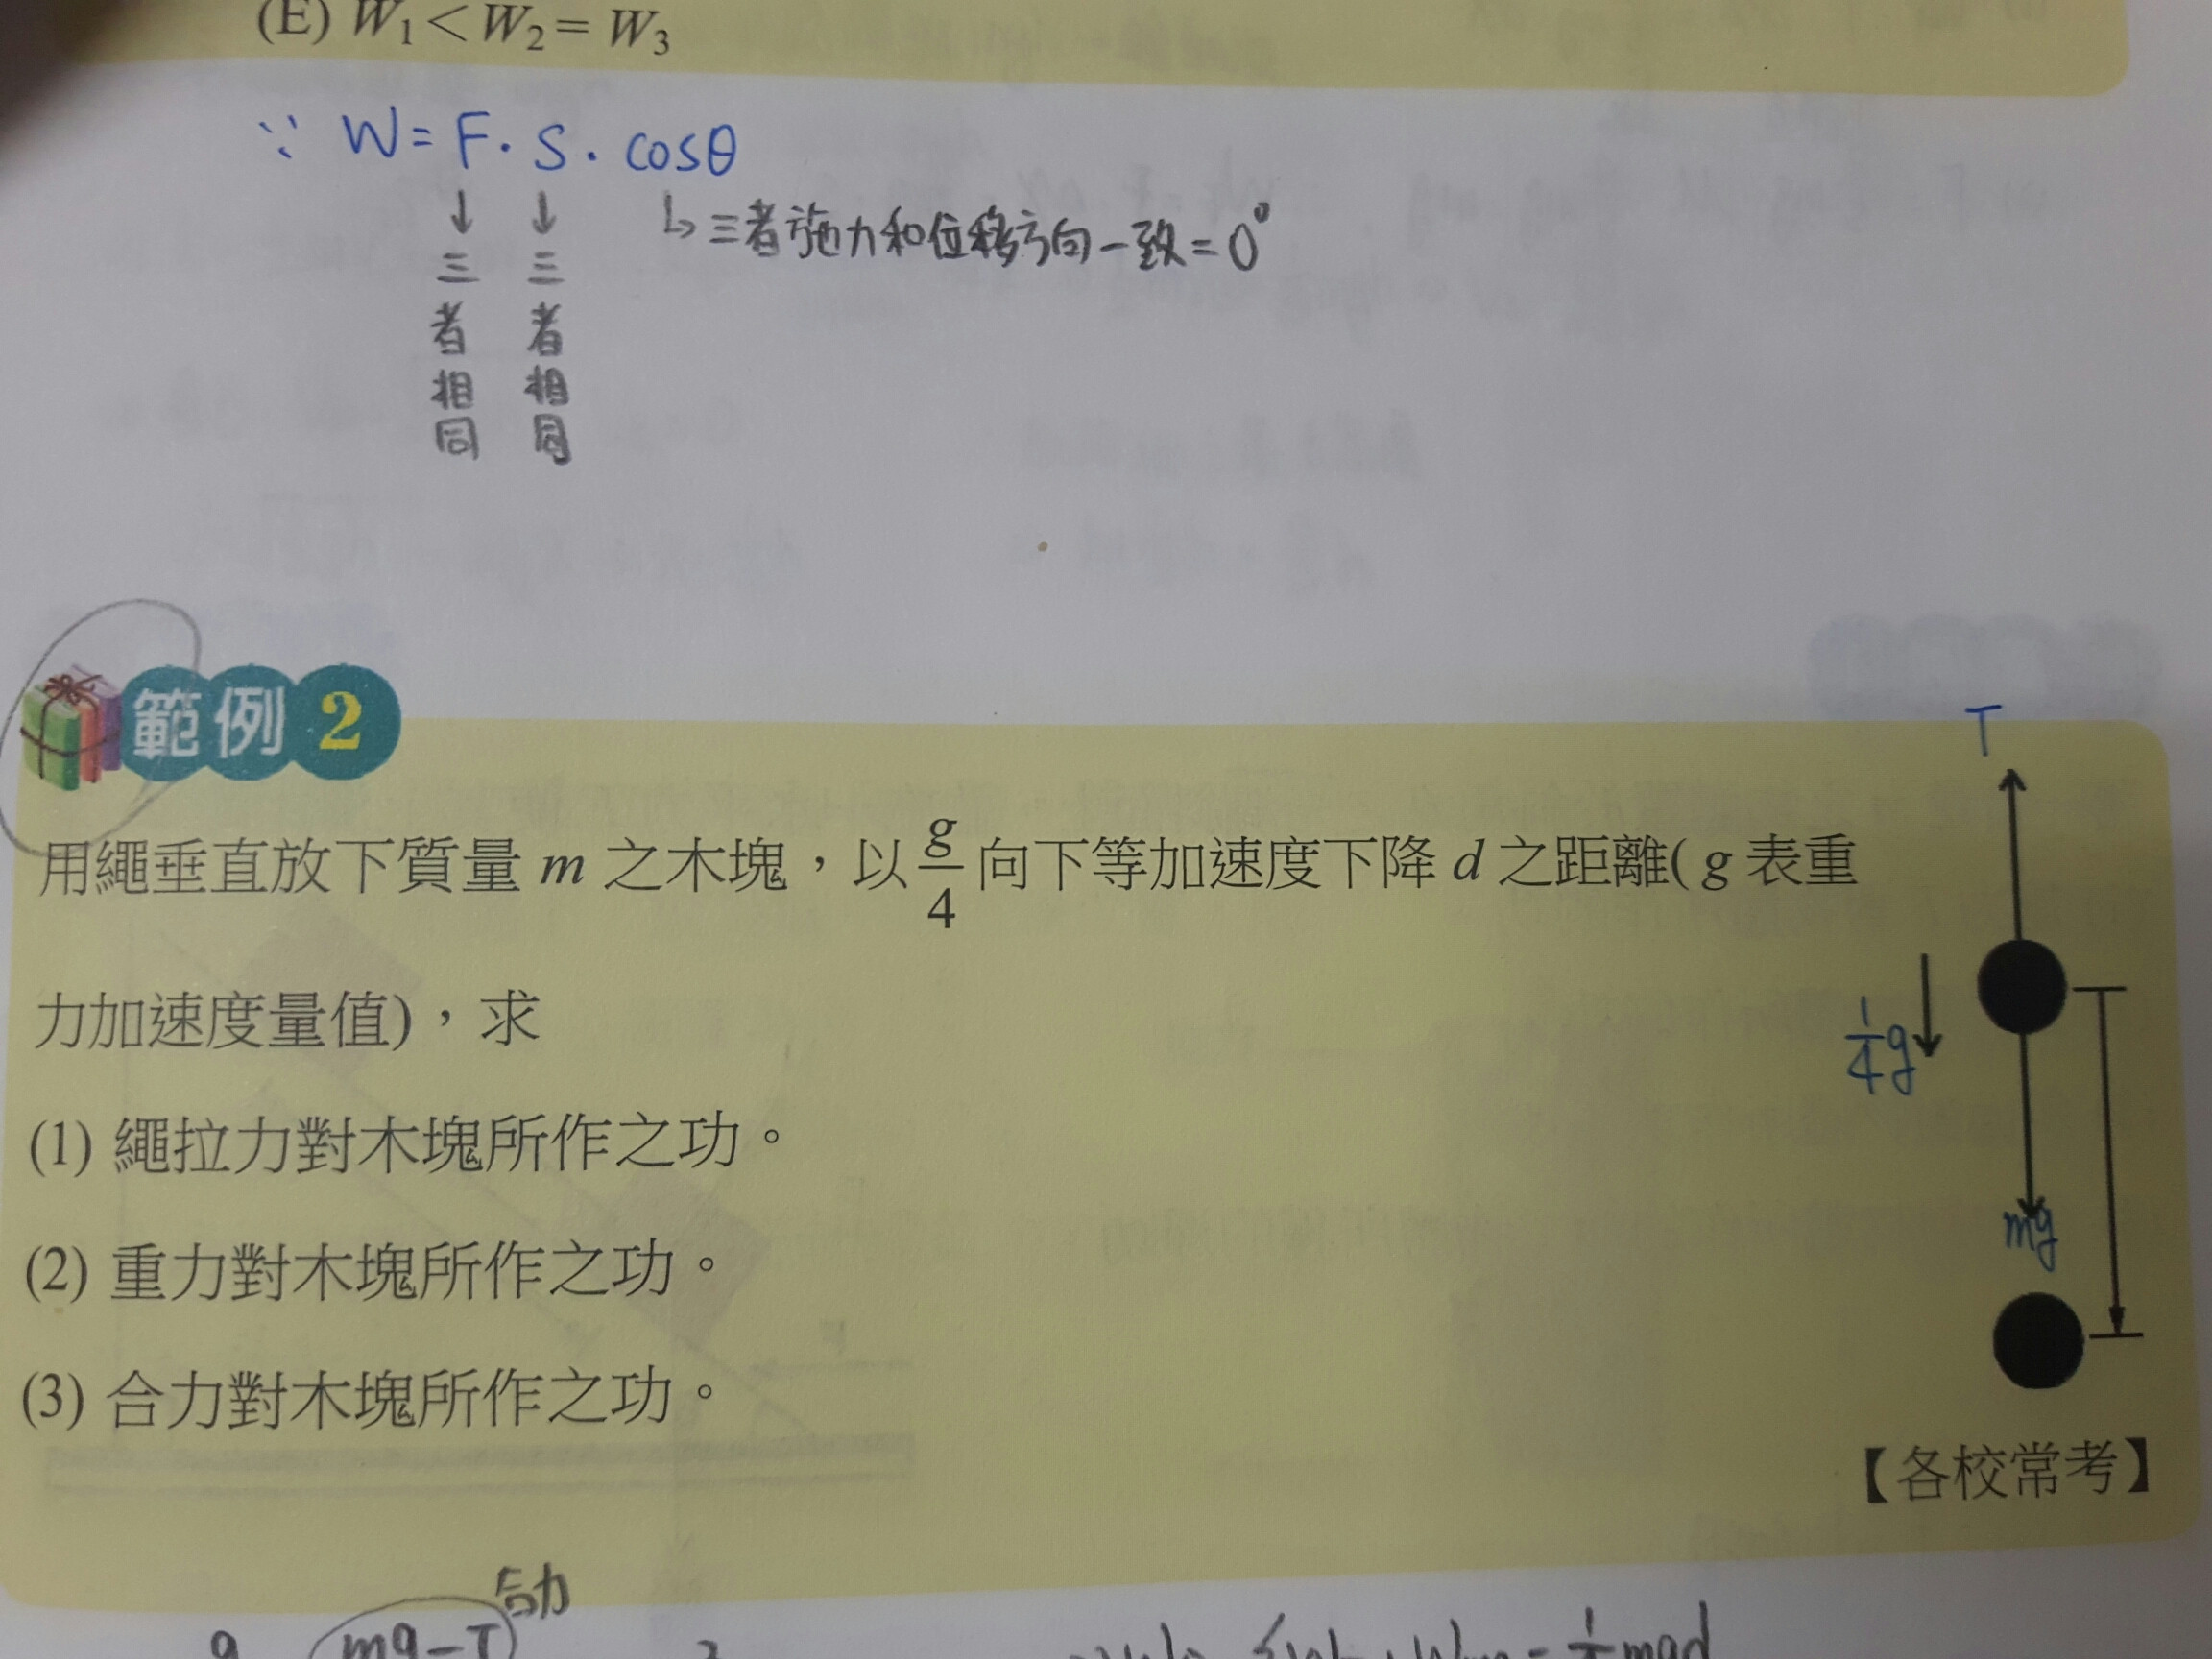 (E) W₁ < W₂ = W₃
∵ W = F · S · cosθ
↓ ↓ ↳ 三者施力和位移方向一致 = 0°
三者相同 三者相同
範例 2
T
用繩垂直放下質量 m 之木塊，以 g/4 向下等加速度下降 d 之距離( g 表重
力加速度量值)，求
1/4 g
(1) 繩拉力對木塊所作之功。
mg
(2) 重力對木塊所作之功。
(3) 合力對木塊所作之功。
【各校常考】
合力
mg－T